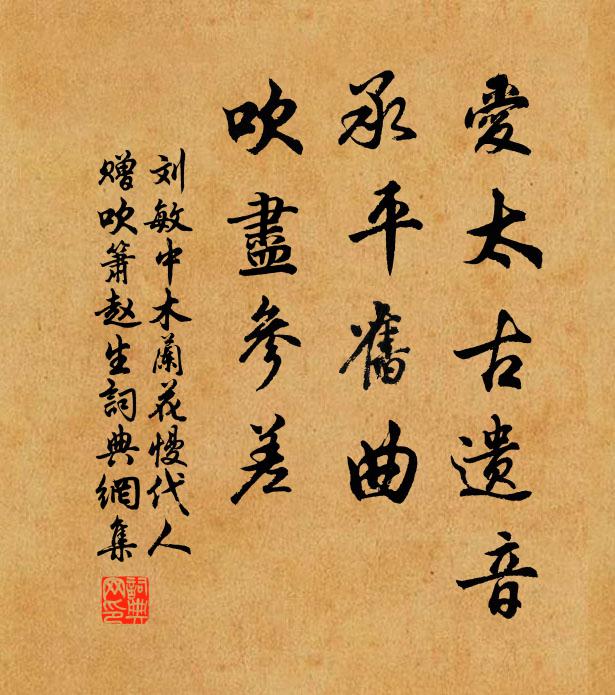 愛太古遺音
承平舊曲
吹盡參差
刘敏中木蘭花慢代人
赠吹箫赵生詞典網集
詞典網印